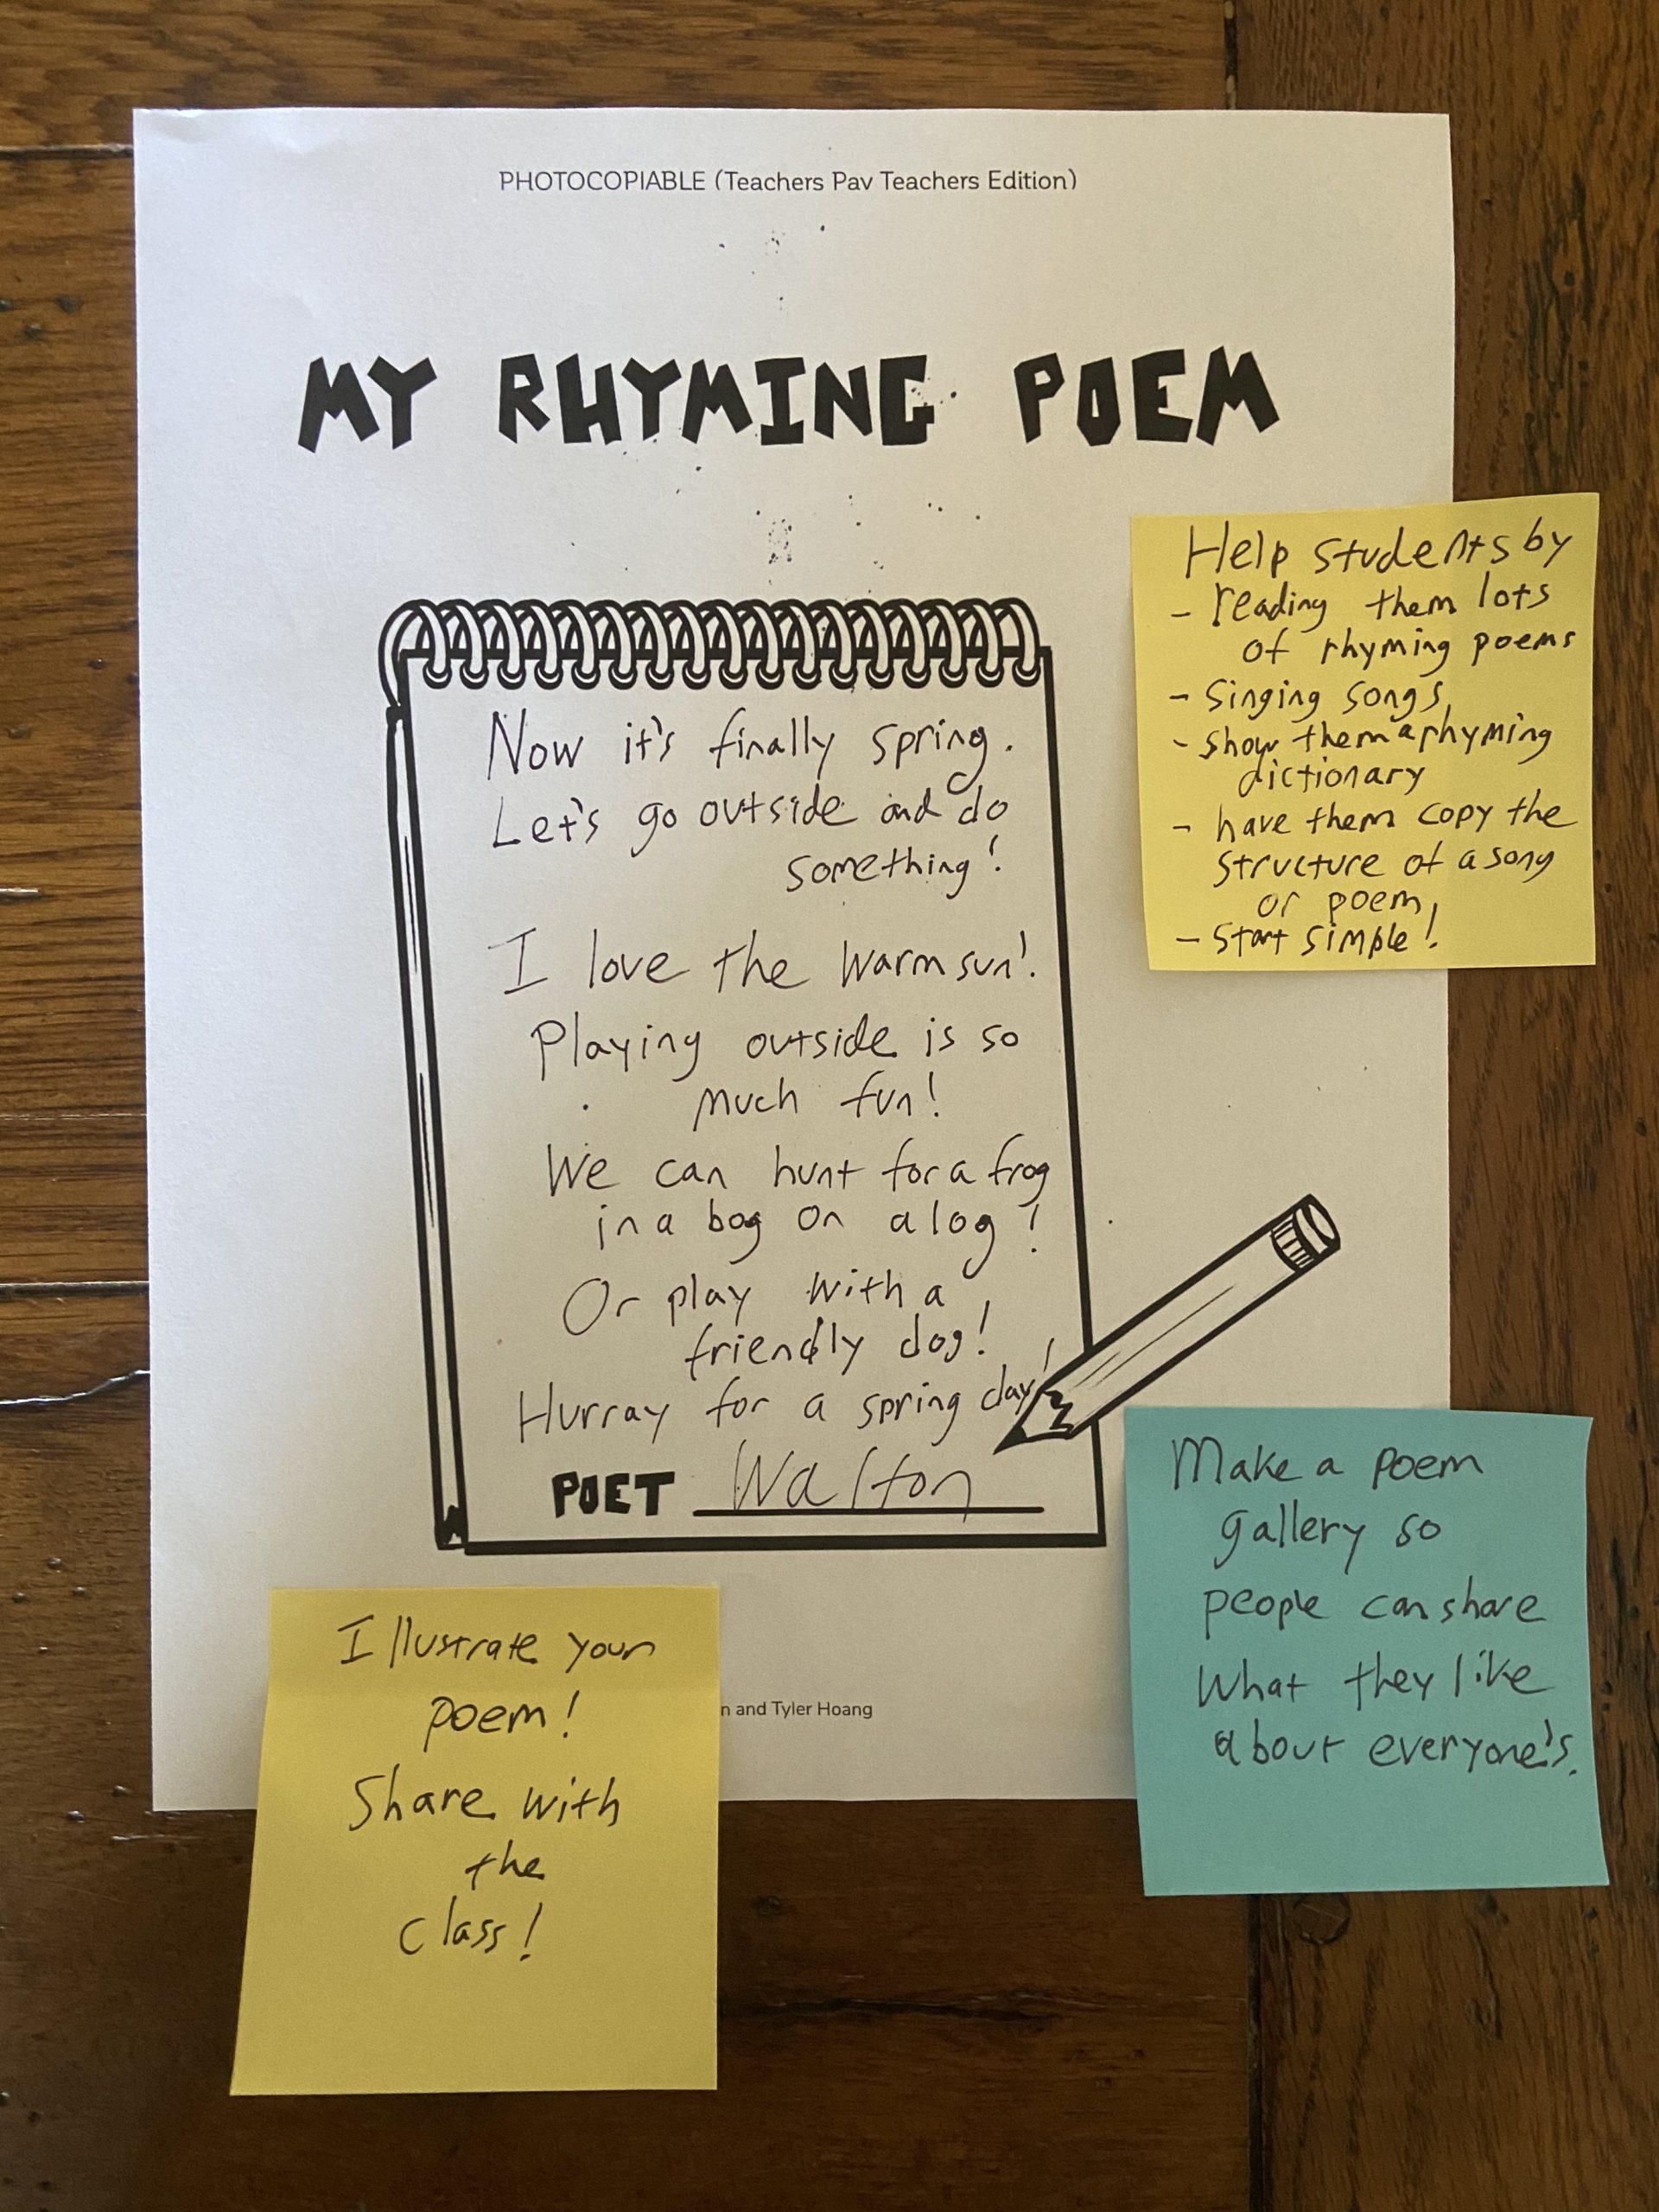 PHOTOCOPIABLE (Teachers Pav Teachers Edition)
MY RHYMING POEM
Now it's finally spring.
Let's go outside and do
something!
I love the warm sun!
Playing outside is so
much fun!
We can hunt for a frog
in a bog on a log!
Or play with a
friendly dog!
Hurray for a spring day!
POET Walton
Help students by
- reading them lots
of rhyming poems
- singing songs
- show them a rhyming
dictionary
- have them copy the
structure of a song
or poem
- start simple!
Make a poem
gallery so
people can share
what they like
about everyone's.
Illustrate your
poem!
Share with
the
class!
n and Tyler Hoang